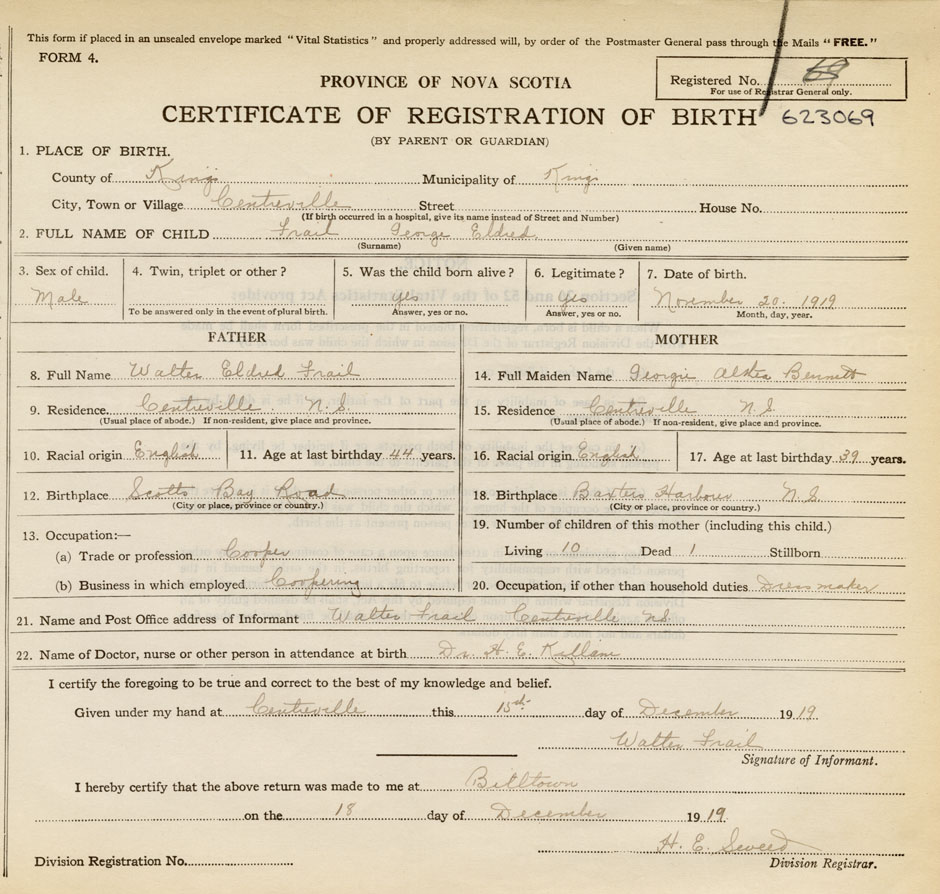 This form if placed in an unsealed envelope marked "Vital Statistics" and properly addressed will, by order of the Postmaster General pass through the Mails "FREE."
FORM 4.
PROVINCE OF NOVA SCOTIA
Registered No. 69
For use of Registrar General only.
CERTIFICATE OF REGISTRATION OF BIRTH 623069
(BY PARENT OR GUARDIAN)
1. PLACE OF BIRTH.
County of Kings Municipality of Kings
City, Town or Village Centreville Street House No.
(If birth occurred in a hospital, give its name instead of Street and Number)
2. FULL NAME OF CHILD Frail George Eldred
(Surname) (Given name)
3. Sex of child. 4. Twin, triplet or other? 5. Was the child born alive? 6. Legitimate? 7. Date of birth.
Male yes yes November 20. 1919
To be answered only in the event of plural birth. Answer, yes or no. Answer, yes or no. Month, day, year.
FATHER MOTHER
8. Full Name Walter Eldred Frail 14. Full Maiden Name Georgie Bennett
9. Residence Centreville. N.S. 15. Residence Centreville N.S.
(Usual place of abode.) If non-resident, give place and province. (Usual place of abode.) If non-resident, give place and province.
10. Racial origin English 11. Age at last birthday 44 years. 16. Racial origin English 17. Age at last birthday 39 years.
12. Birthplace Scotts Bay Road 18. Birthplace Baxters Harbour N.S
(City or place, province or country.) (City or place, province or country.)
13. Occupation:— 19. Number of children of this mother (including this child.)
(a) Trade or profession Cooper Living 10 Dead 1 Stillborn
(b) Business in which employed Coopering 20. Occupation, if other than household duties Dressmaker
21. Name and Post Office address of Informant Walter Frail Centreville N.S.
22. Name of Doctor, nurse or other person in attendance at birth Dr. H. E. Killam
I certify the foregoing to be true and correct to the best of my knowledge and belief.
Given under my hand at Centreville this 15th day of December 1919.
Walter Frail
Signature of Informant.
I hereby certify that the above return was made to me at Billtown
on the 18 day of December 1919.
H. E.
Division Registration No. Division Registrar.